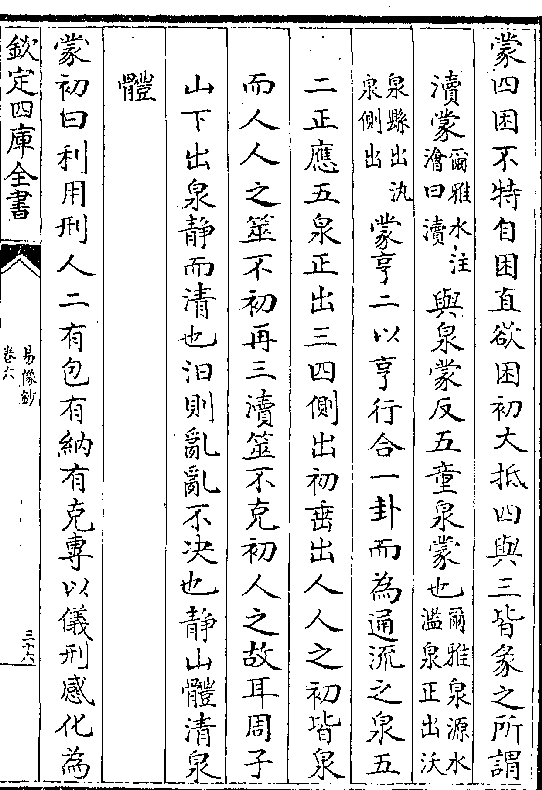 蒙四困不特自困直欲困初大抵四與三皆彖之所謂
瀆蒙爾雅水注澮曰瀆與泉蒙反五童泉蒙也爾雅泉源水濫泉正出沃
泉縣出氿泉側出蒙亨二以亨行合一卦而為通流之泉五
二正應五泉正出三四側出初垂出人人之初皆泉
而人人之筮不初再三瀆筮不克初人之故耳周子
山下出泉静而清也汩則亂亂不决也静山體清泉
體
蒙初曰利用刑人二有包有納有克專以儀刑感化為
欽定四庫全書
易像鈔
卷六
三十六